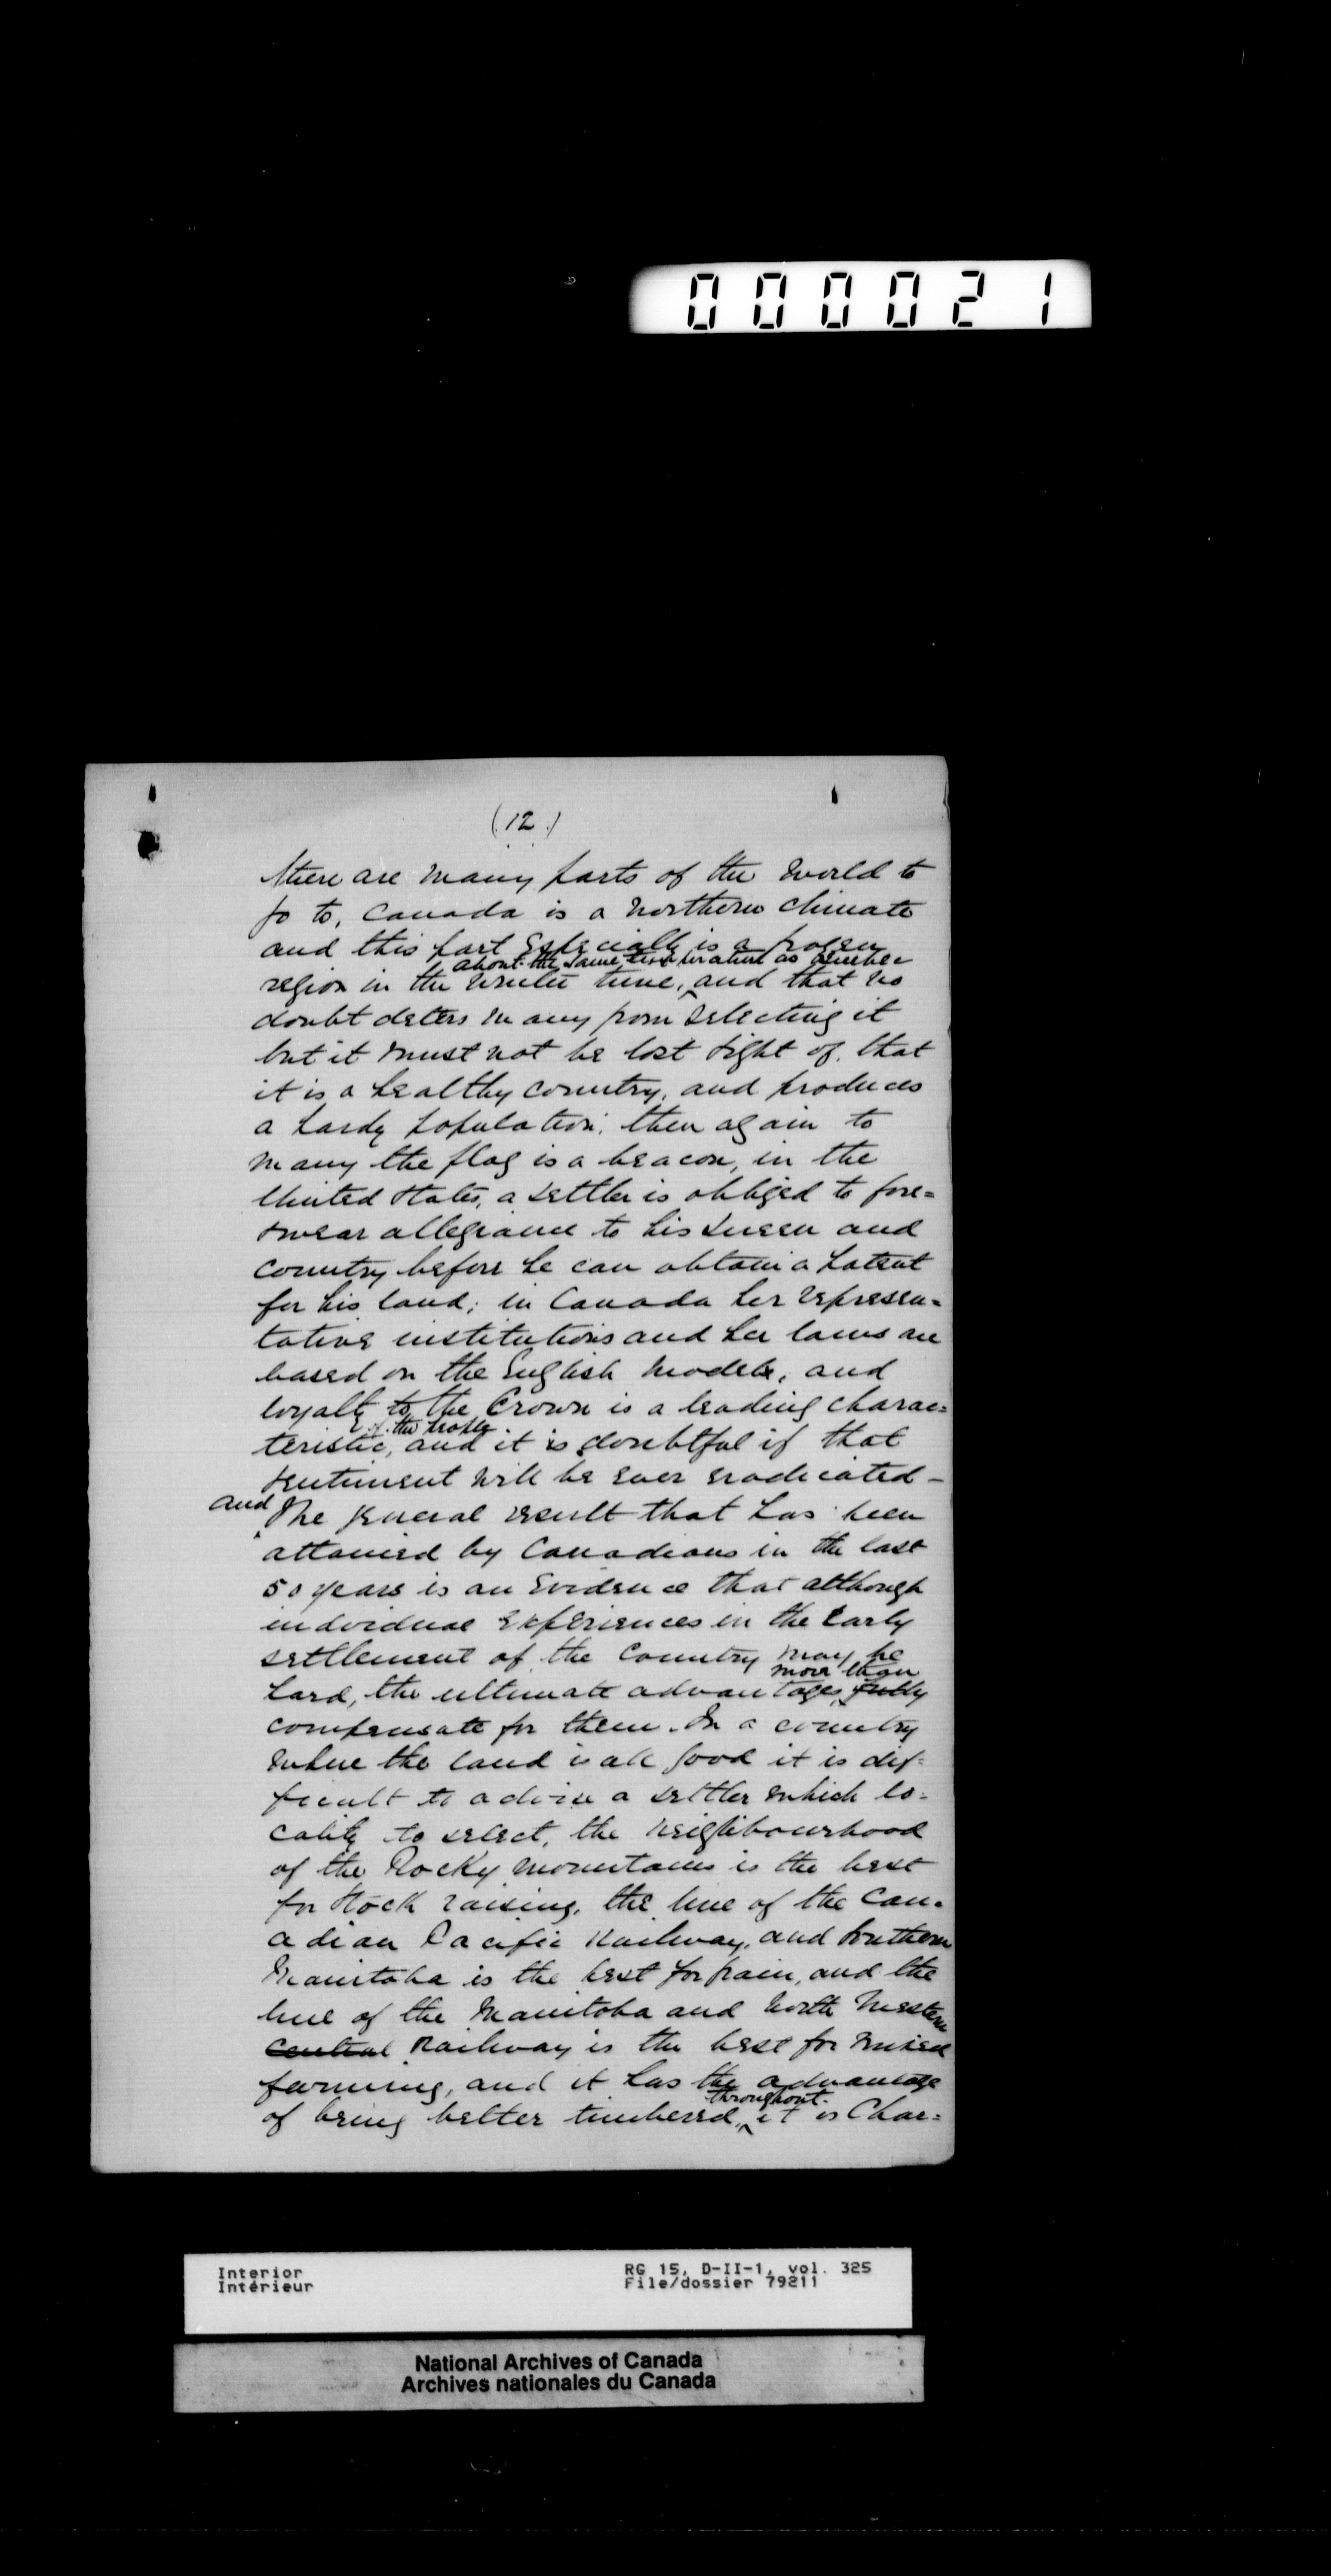 000021
(12.)
there are many parts of the world to
go to, Canada is a northern climate
and this part Especially is a frozen
about the same temperature as Quebec
region in the winter time, and that no
doubt deters many from selecting it
but it must not be lost sight of, that
it is a healthy country, and produces
a hardy population, then again to
many the flag is a beacon, in the
United States, a settler is obliged to fore=
swear allegiance to his Queen and
country before he can obtain a patent
for his land; in Canada her represen=
tative institutions and her laws are
based on the English models, and
loyalty to the Crown is a leading charac=
of the
teristic, and it is doubtful if that
sentiment will be ever eradicated –
and The general result that has been
attained by Canadians in the last
50 years is an Evidence that although
individual Experiences in the Early
settlement of the Country may be
more than
hard, the ultimate advantages fully
compensate for them. In a country
where the land is all good it is dif=
ficult to advise a settler which lo=
cality to select, the neighbourhood
of the Rocky Mountains is the best
for Stock raising, the line of the Can=
adian Pacific Railway, and Southern
Manitoba is the best for grain, and the
line of the Manitoba and North Western
Central Railway is the best for mixed
farming, and it has the advantage
throughout.
of being better timbered, it is Char=
Interior
Intérieur
RG 15, D-II-1, vol. 325
File/dossier 79211
National Archives of Canada
Archives nationales du Canada